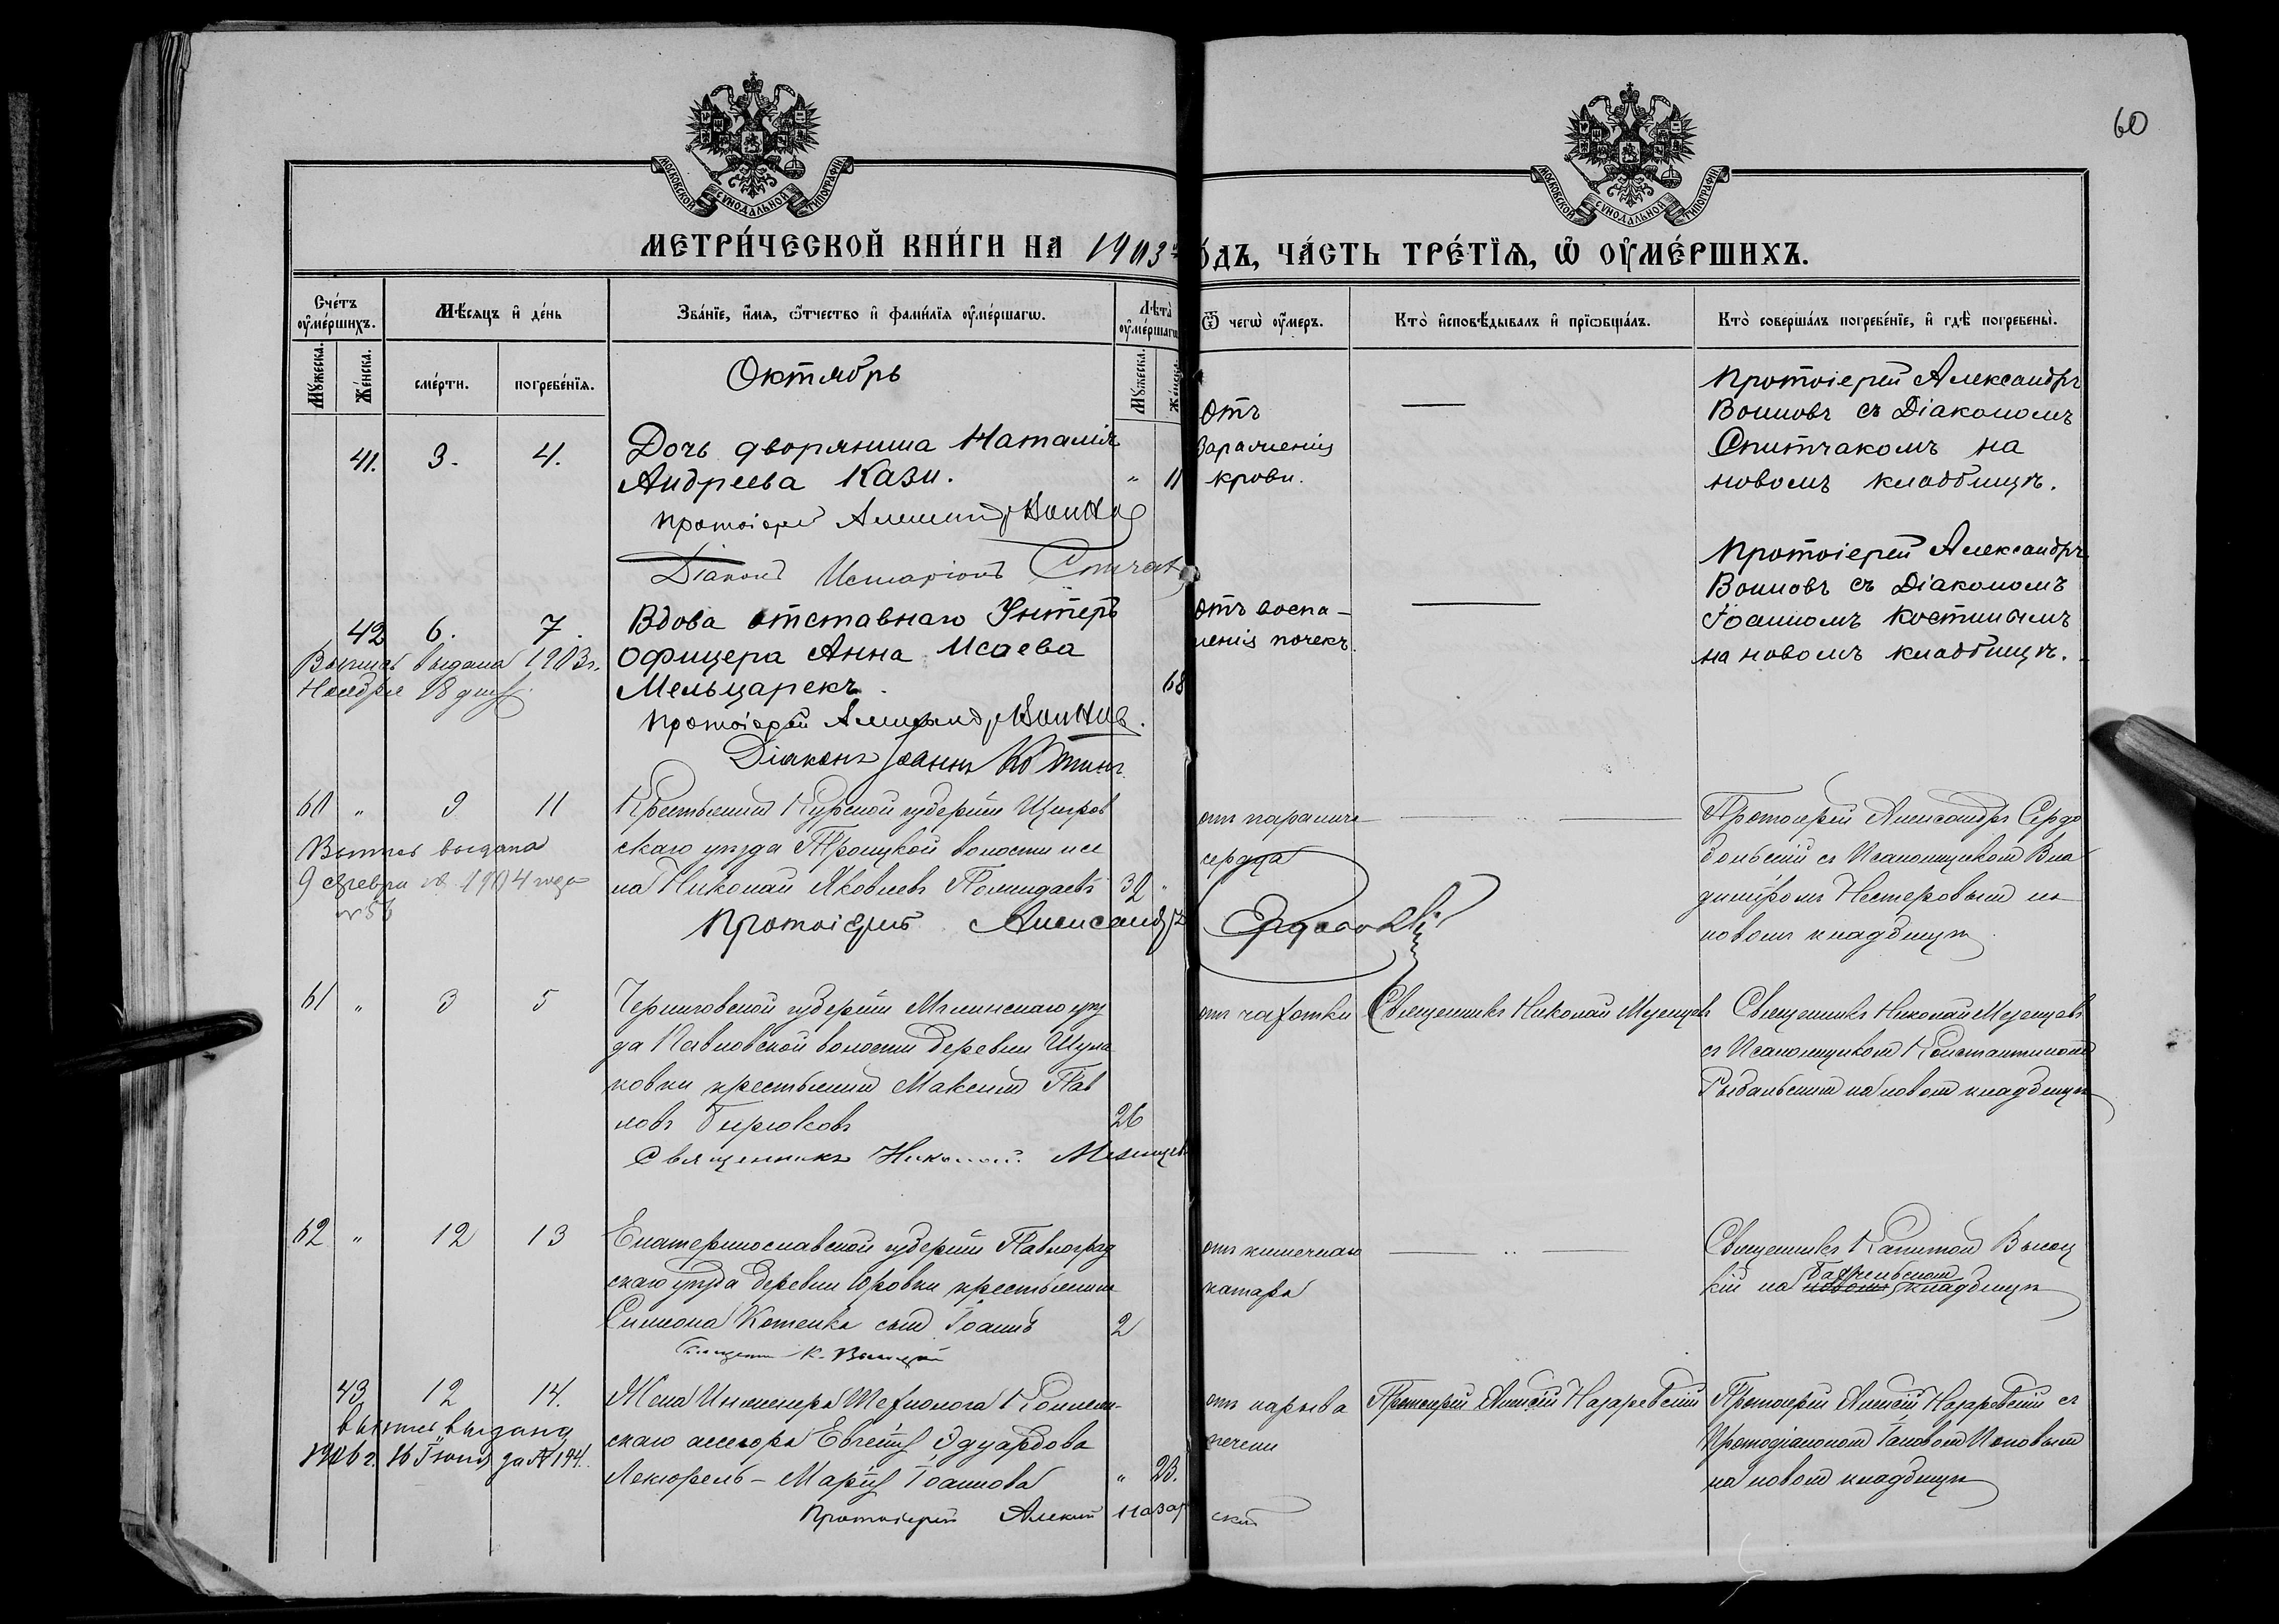 60
МОСКОВСКОЙ СУНОДАЛЬНОЙ ТИПОГРАФІИ
МОСКОВСКОЙ СУНОДАЛЬНОЙ ТИПОГРАФІИ
МЕТРИ́ЧЕСКОЙ КНИ́ГИ НА 1903 го́дъ, ЧА́СТЬ ТРЕ́ТЇѦ, Ѡ҆ ОУ҆МЕ́РШИХЪ.
Сче́тъ оу҆ме́ршихъ.
Мѣ́сѧцъ и҆ де́нь
Зва́нїе, и҆́мѧ, ѻ҆́тчество и҆ фами́лїѧ оу҆ме́ршагѡ.
Лѣ́та оу҆ме́ршагѡ
Ѿ чегѡ̀ оу҆́меръ.
Кто̀ и҆сповѣ́дывалъ и҆ прїѡбща́лъ.
Кто̀ соверша́лъ погребе́нїе, и҆ гдѣ̀ погребены̀.
Мꙋ́жеска.
Же́нска.
сме́рти.
погребе́нїѧ.
Мꙋ́жеска.
Октябрь
41. 3. 4.
Дочь дворянина Наталія
Андреева Кази. " 11
Протоіерей Александръ Воиновъ
Діаконъ Иларіонъ Спитчак
Отъ
зараженія
крови.
Протоіерей Александръ
Воиновъ съ Діакономъ
Спитчакомъ на
новомъ кладбищѣ.
42 6. 7.
Выпись выдана 1903 г.
Ноября 18 дня
Вдова отставнаго Унтеръ
офицера Анна Исаева
Мельцарекъ. 68
Протоіерей Александръ Воиновъ.
Діаконъ Іоаннъ Костинъ
Отъ воспа-
ленія почекъ.
Протоіерей Александръ
Воиновъ съ Діакономъ
Іоанномъ Костинымъ
на новомъ кладбищѣ.
60 " 9 11
Выпись выдана
9 февраля 1904 года
№ 56
Крестьянинъ Курской губерніи Щигров
скаго уѣзда Троицкой волости и се
ла Николай Яковлевъ 39 "
Протоіерей Александръ Сердобольскій
отъ паралича
сердца
Протоіерей Александръ Сердо
больскій съ Псаломщикомъ Вла
диміромъ Нестеровымъ на
новомъ кладбищѣ
61 " 3 5
Черниговской губерніи Мглинскаго уѣз
да Павловской волости деревни Шума
ковки крестьянинъ Максимъ Пав
ловъ Бирюковъ 26
Священникъ Николай Мезенцевъ
отъ чахотки
Священникъ Николай Мезенцевъ
Священникъ Николай Мезенцевъ
съ Псаломщикомъ Константиномъ
Рыбальскимъ на новомъ кладбищѣ
62 " 12 13
Екатеринославской губерніи Павлоград
скаго уѣзда деревни Юровки крестьянина
Симеона Котенка сынъ Іоаннъ 2
Священник К. Высоцкій
отъ кишечнаго
катара
Священникъ Капитонъ Высоц
кій на новомъ кладбищѣ
43 12 14.
Выпись выдана
1906 г. 16 Іюня за № 194.
Жена Инженера Технолога Коллеж-
скаго ассесора Евгенія Эдуардова
Лекюрель – Марія Іоаннова " 23.
Протоіерей Алексій Назаревскій
отъ нарыва
печени
Протоіерей Алексій Назаревскій
Протоіерей Алексій Назаревскій съ
Протодіакономъ Іаковомъ Поповымъ
на новомъ кладбищѣ